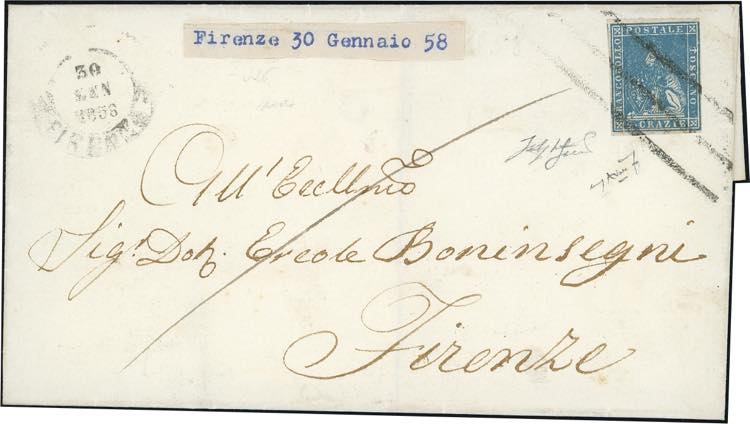 Firenze 30 Gennaio 58
30
GEN
1858
FIRENZE
FRANCOBOLLO
POSTALE
TOSCANO
CRAZIE
All' Eccllmo
Sigr. Dott. Ercole Boninsegni
Firenze